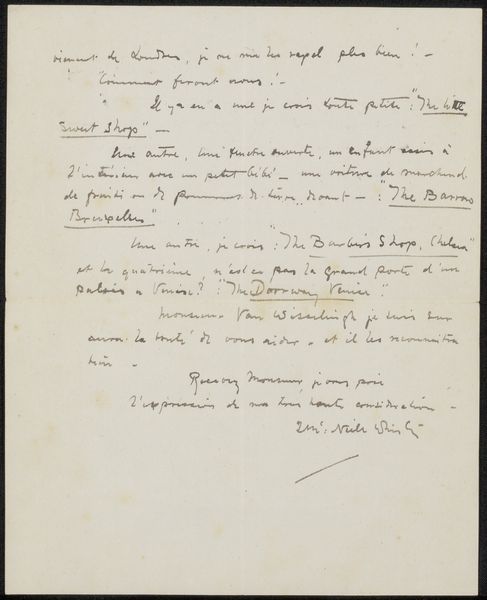 viennent de Londres, je ne me les rapel plus bien! –
Comment ferons nous! –
Il y en a une je crois toute petite: "The little
Sweet Shop" –
Une autre, une fenetre ouverte, un enfant assis à
l'interieur avec un petit bébé – une voiture de marchand
de fruits ou de pommes de terre devant – : "The Barrow
Bruxelles"
Une autre, je crois: "The Barber's Shop, Chelsea"
et la quatrieme, n'est ce pas la grande porte d'un
palais a Venise? "The Doorway Venice".
Monsieur Van Wisselingh je suis sur
aura la bonté de vous aider – et il les reconnaitra
bien –
Recevez Monsieur je vous prie
l'expression de ma tres haute consideration –
J. McNeill Whistler